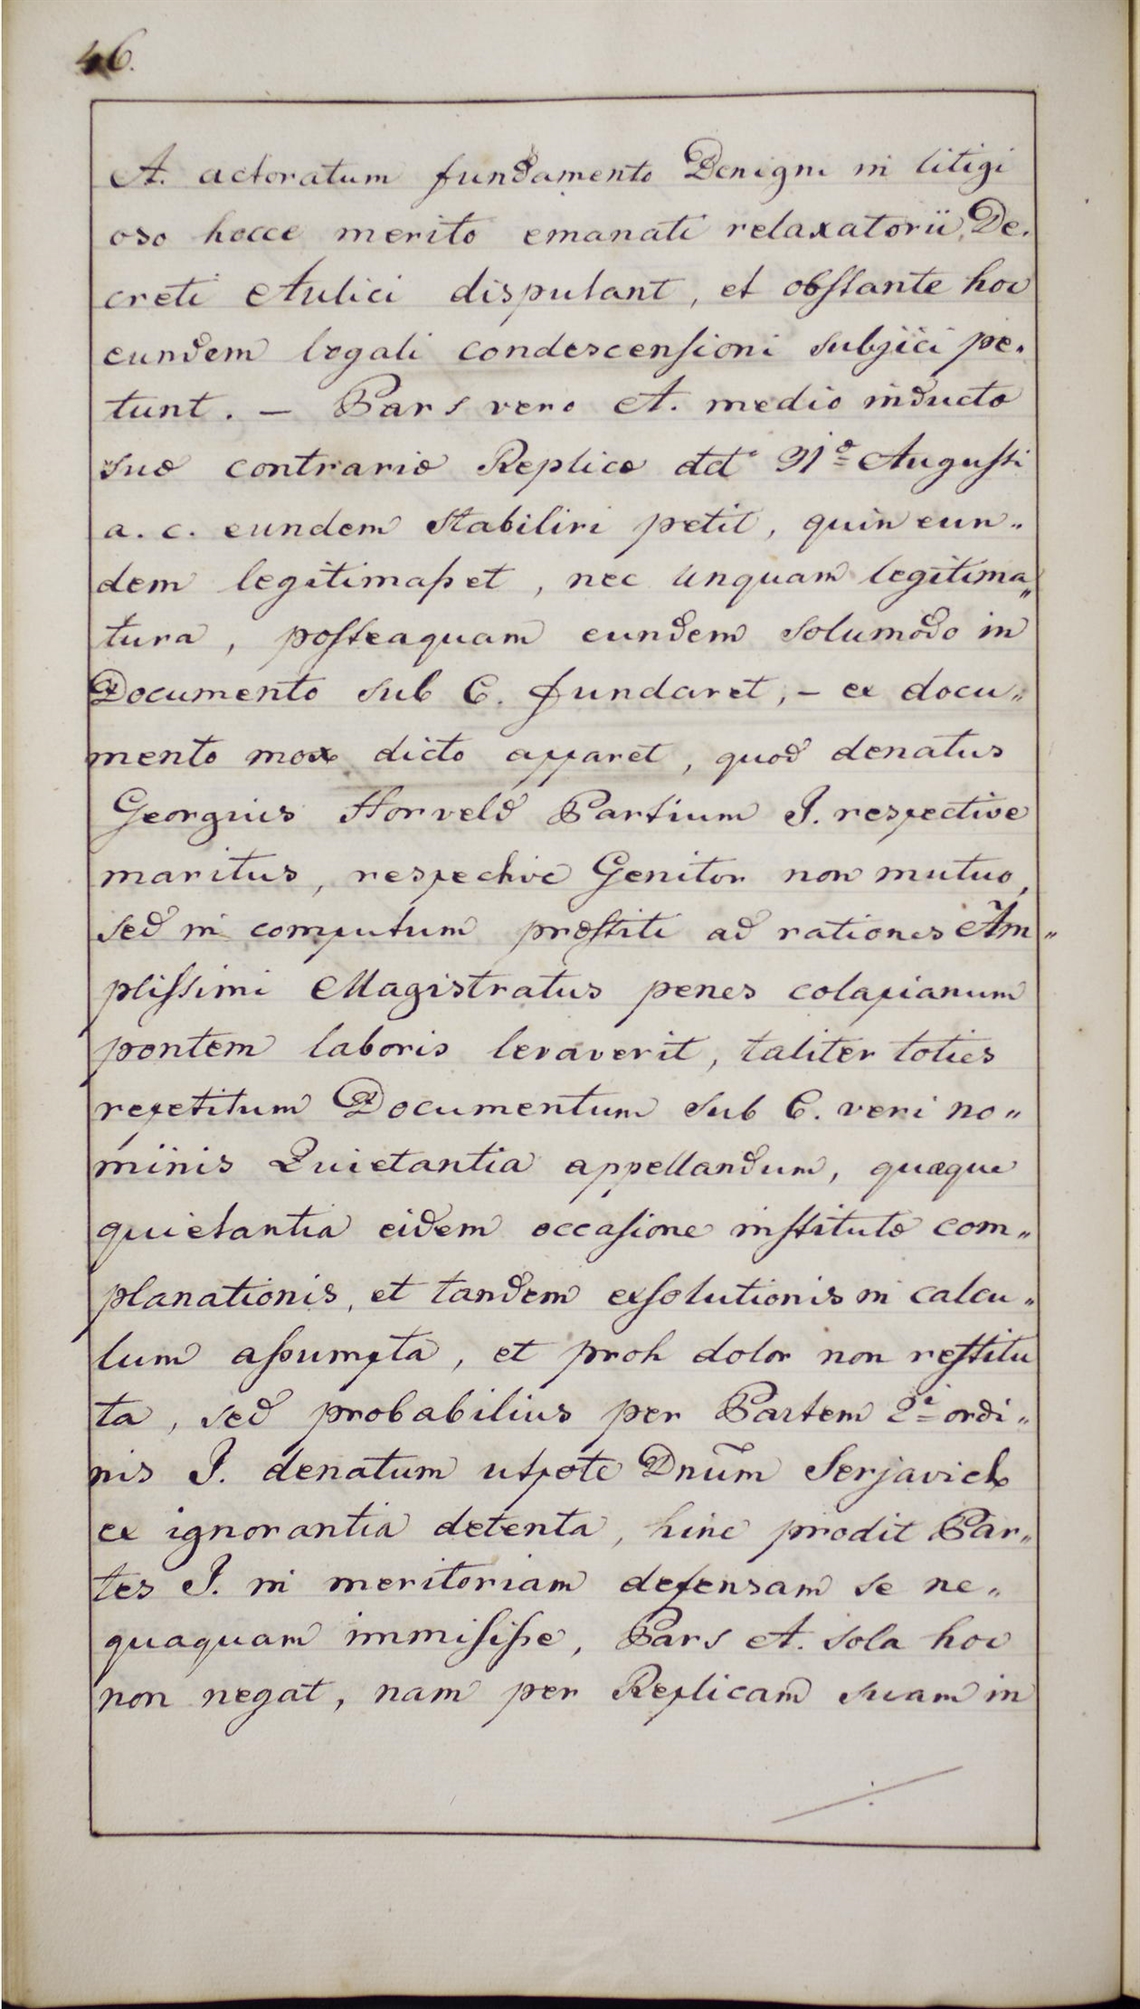 46.
A. actoratum fundamento Benigni in litigi
oso hocce merito emanati relaxatorii De-
creti Aulici disputant, et obstante hoc
eundem legali condescensioni subjici pe-
tunt. – Pars vero A. medio inducto
suo contrario Replica ddto 31o Augusti
a. c. eundem stabiliri petit, quin eun„
dem legitimasset, nec unquam legitima„
tura, posteaquam eundem solumodo in
Documento sub C. fundaret, – ex docu„
mento mox dicto apparet, quod denatus
Georgius Horveld Partium I. respective
maritus, respective Genitor non mutuo,
sed in computum præstiti ad rationes Am„
plissimi Magistratus penes colapianum
pontem laboris levaverit, taliter toties
repetitum Documentum sub C. veri no„
minis Quietantia appellandum, quæque
quietantia eidem occasione institutæ com„
planationis, et tandem exsolutionis in calcu„
lum assumpta, et proh dolor non restitu
ta, sed probabilius per Partem 2i ordi„
nis I. denatum utpote Dnum Serjavich
ex ignorantia detenta, hinc prodit Par„
tes I. in meritoriam defensam se ne„
quaquam immisisse, Pars A. sola hoc
non negat, nam per Replicam suam in